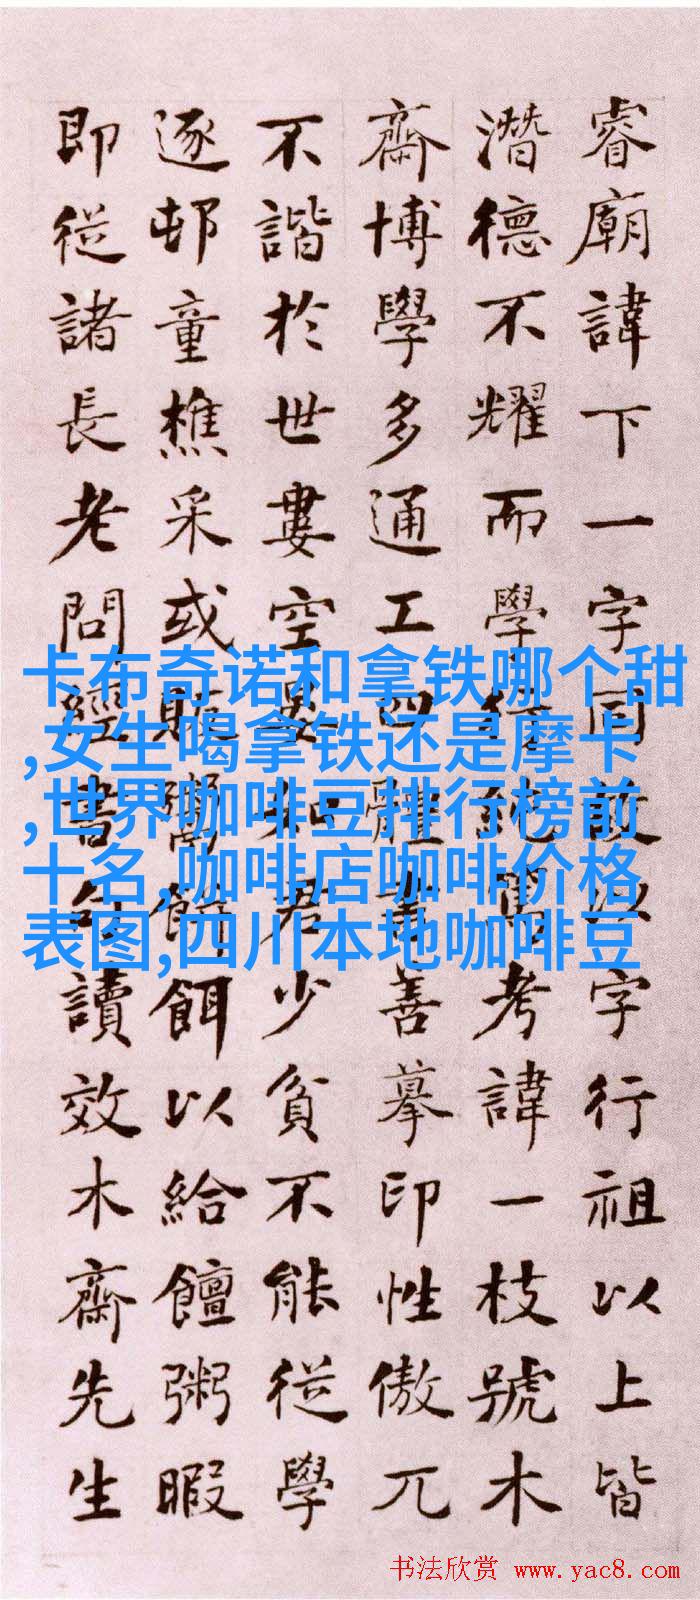 睿廟諱下一字同故以字行祖以上皆
潛德不耀而學行純篤考諱一枝號木
齋博學多通工四體書善摹印性傲兀
不諧於世婁空晏如君少貧不能從學
逐邨童樵采或販鬻餅餌以給饘粥暇
即從諸長老問經書句讀效木齋先生
卡布奇诺和拿铁哪个甜
,女生喝拿铁还是摩卡
,世界咖啡豆排行榜前
十名,咖啡店咖啡价格
表图,四川本地咖啡豆
书法欣赏 www.yac8.com